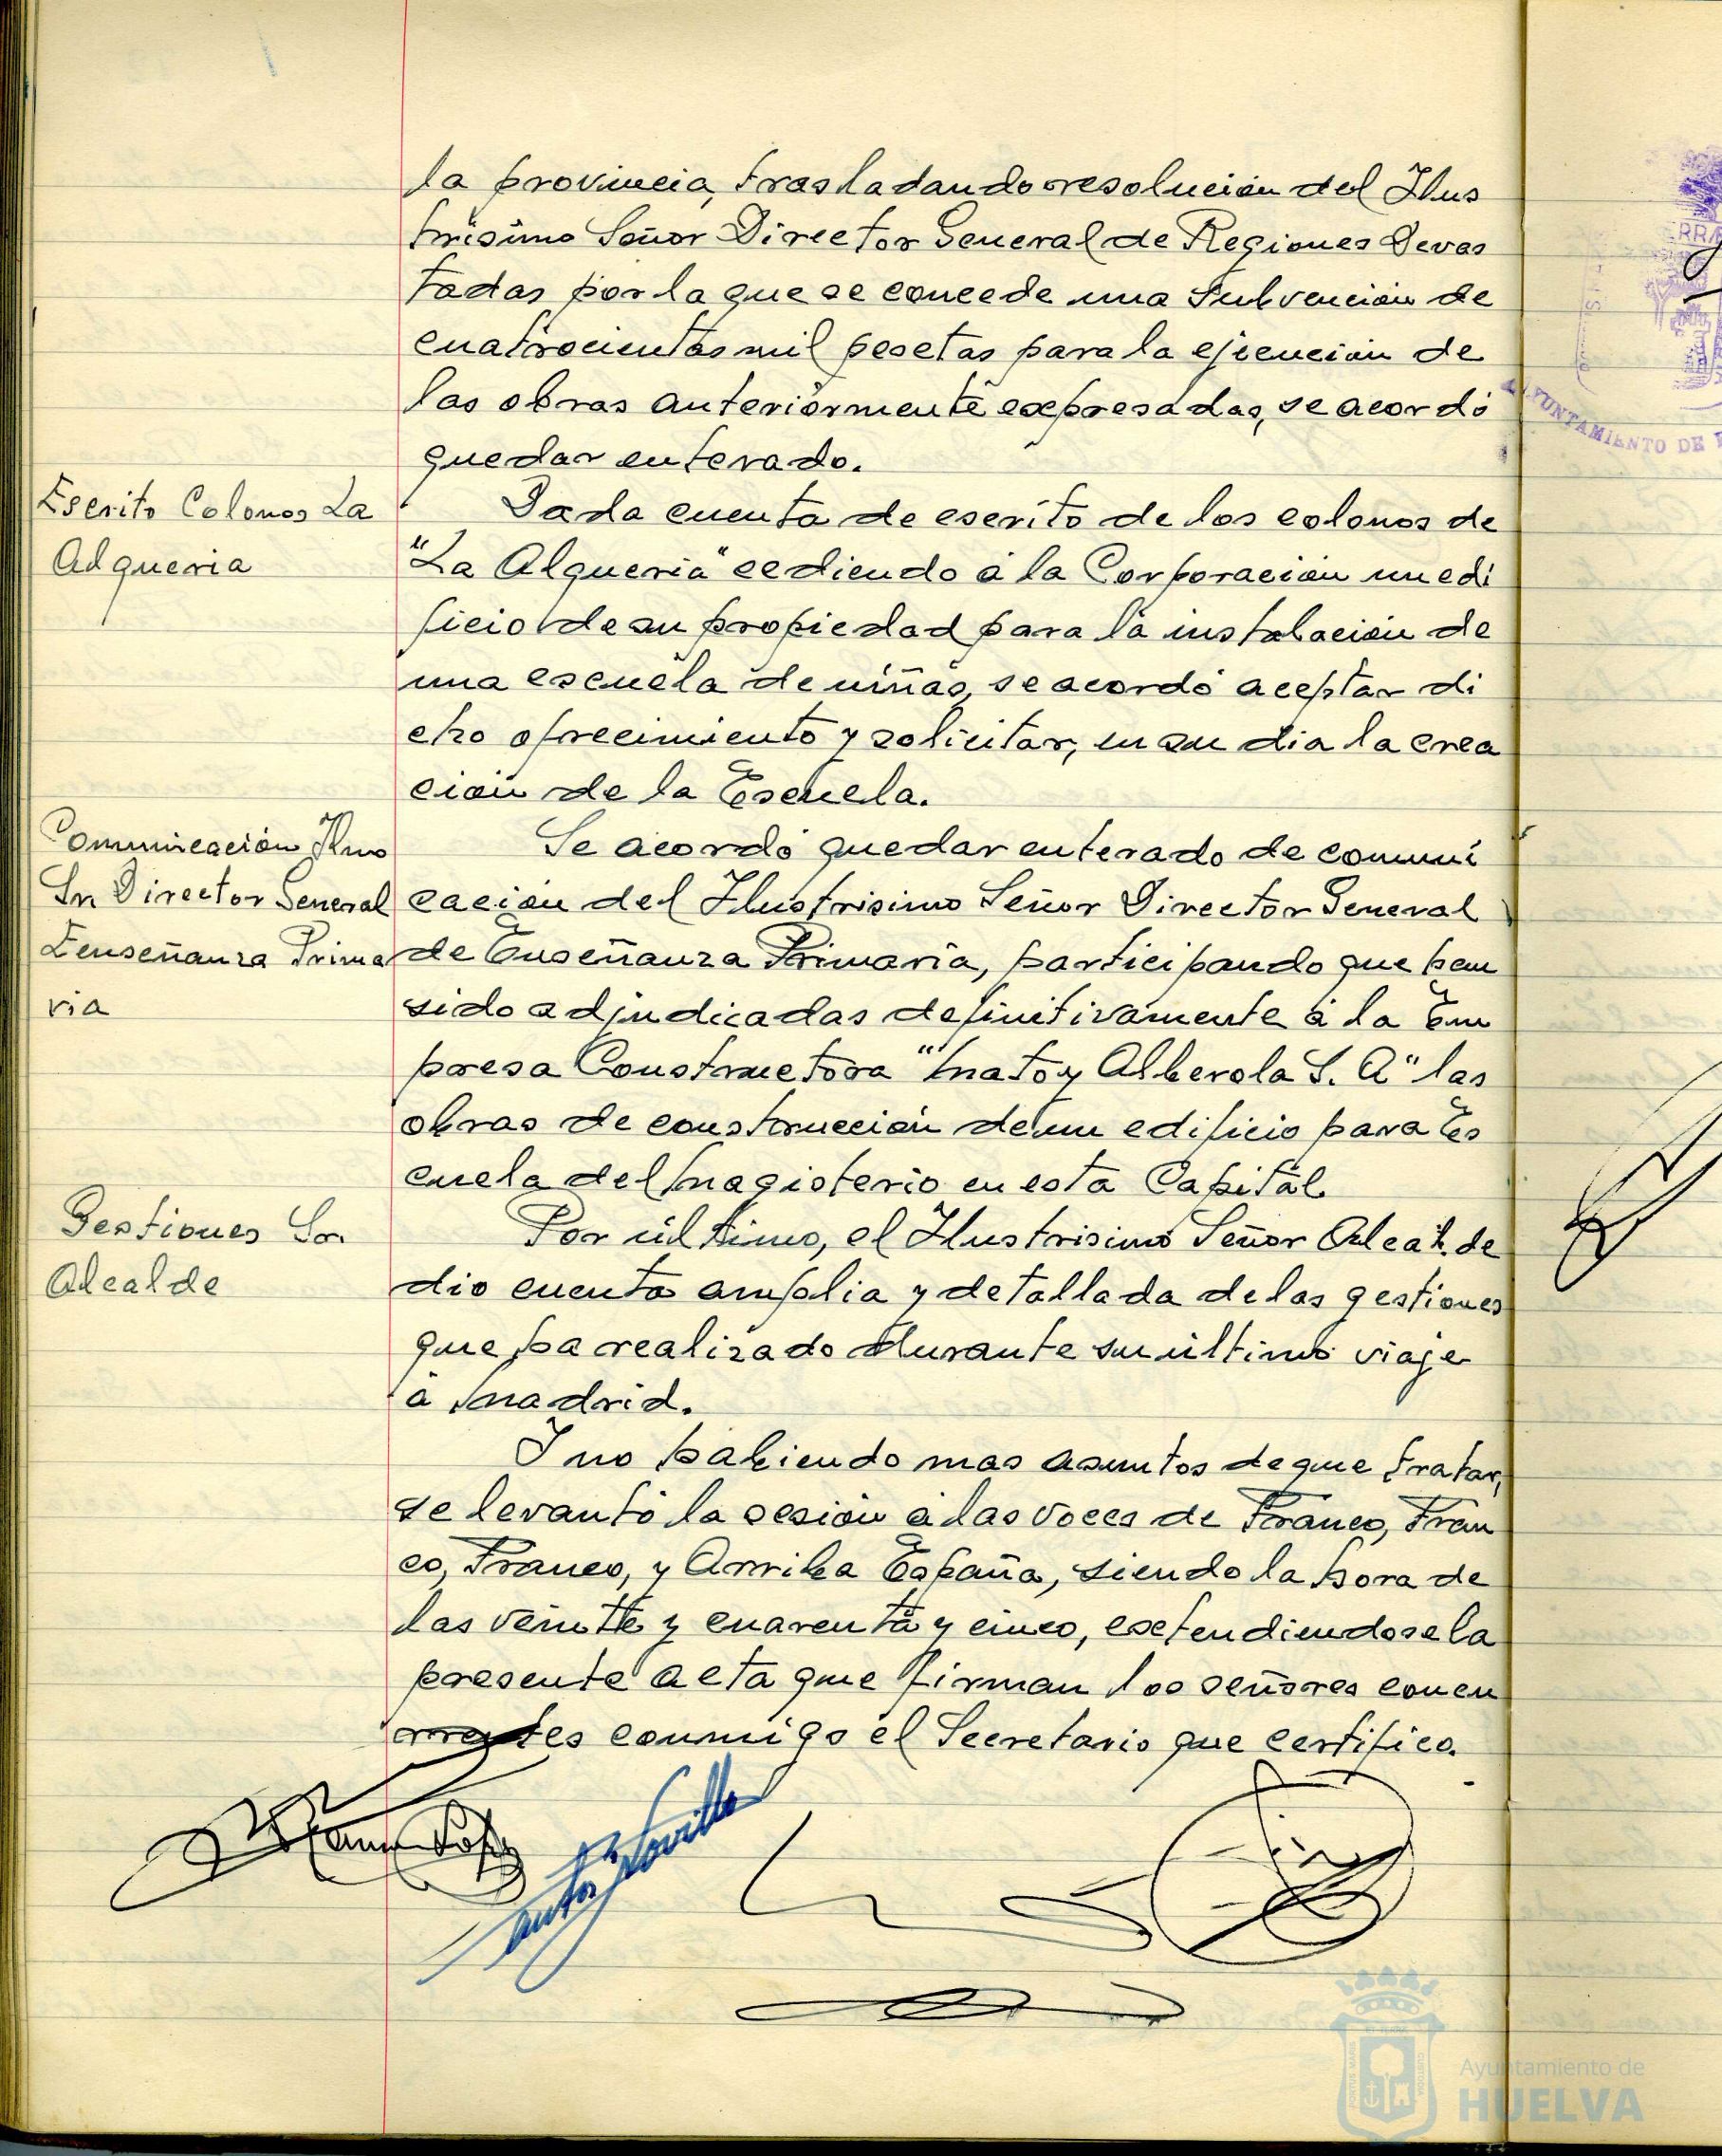 la provincia, trasladando resolución del Ilus
trisimo Señor Director General de Regiones Devas
tadas por la que se concede una Subvención de
cuatrocientas mil pesetas para la ejecución de
las obras anteriormente expresadas, se acordó
quedar enterado.
Escrito Colonos La
Alqueria
Dada cuenta de escrito de los colonos de
"La Alqueria" cediendo á la Corporación un edi
ficio de su propiedad para la instalación de
una escuela de niñas, se acordó aceptar di
cho ofrecimiento y solicitar, en su dia la crea
ción de la Escuela.
Comunicación Ilmo
Sr Director General
Enseñanza Prima
ria
Se acordó quedar enterado de comuni
cación del Ilustrisimo Señor Director General
de Enseñanza Primaria, participando que han
sido adjudicadas definitivamente á la Em
presa Constructora "Mato y Alberola S. A" las
obras de construcción de un edificio para Es
cuela del Magisterio en esta Capital.
Gestiones Sr.
Alcalde
Por último, el Ilustrisimo Señor Alcalde
dio cuenta amplia y detallada de las gestiones
que ha realizado durante su último viaje
á Madrid.
Y no habiendo mas asuntos de que tratar,
se levantó la sesión á las voces de Franco, Fran
co, Franco, y Arriba España, siendo la hora de
las veinte y cuarenta y cinco, extendiendose la
presente acta que firman los señores concu
rrentes conmigo el Secretario que certifico.
AYUNTAMIENTO DE
Ayuntamiento de
HUELVA